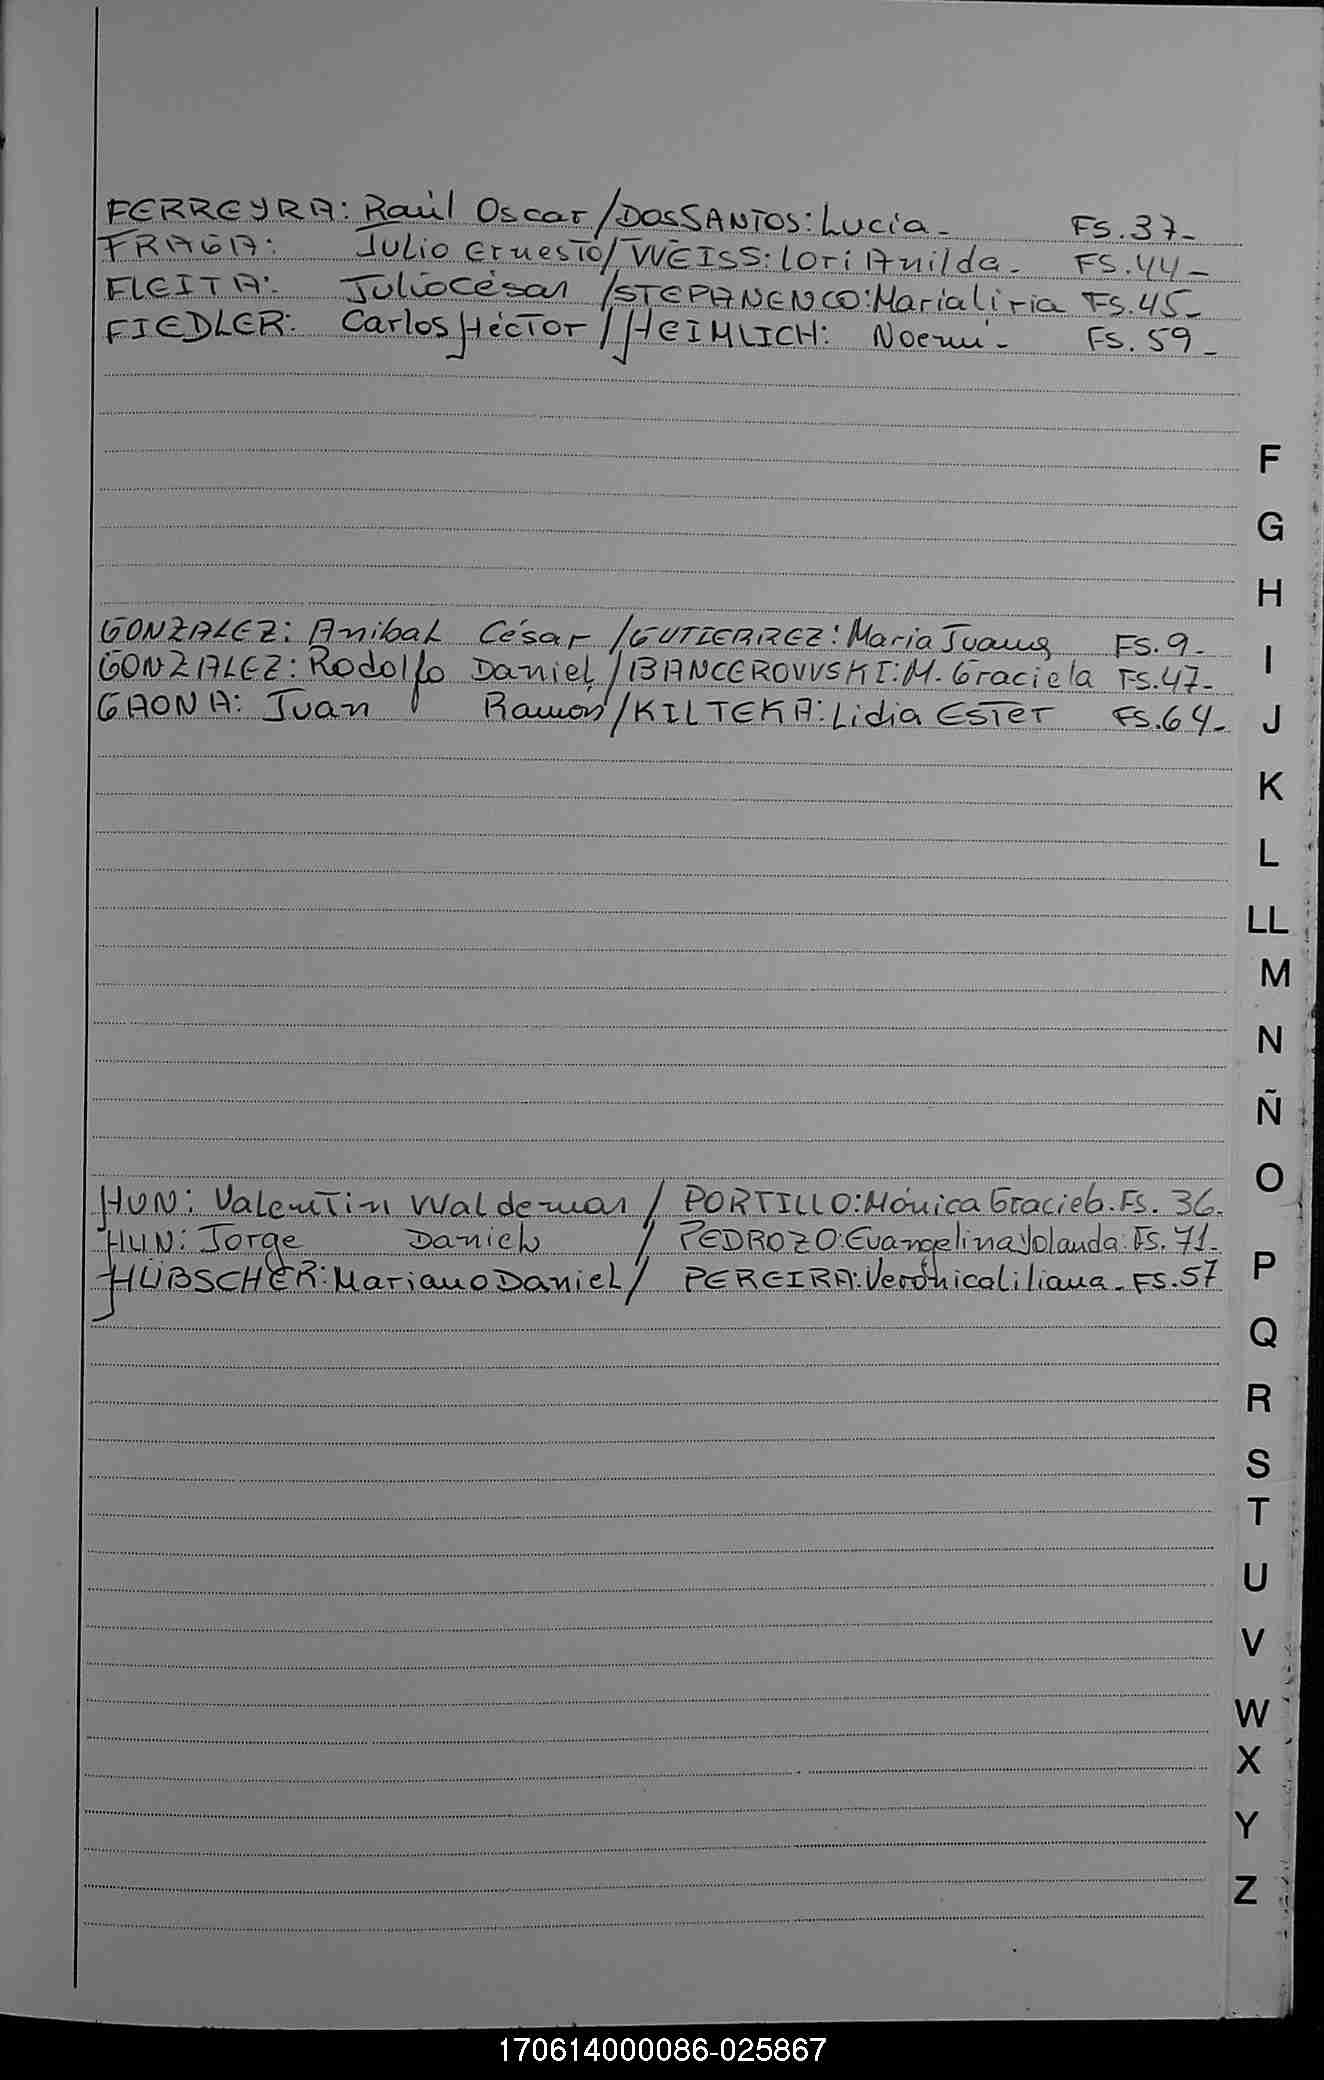 FERREYRA: Raúl Oscar / DOS SANTOS: Lucia - FS. 37 -
FRAGA: Julio Ernesto / WEISS: Lori Anilda - FS. 44 -
FLEITA: Julio César / STEPANENCO: Maria liria FS. 45 -
FIEDLER: Carlos Héctor / HEIMLICH: Noemi - FS. 59 -
F
G
H
GONZALEZ: Anibal César / GUTIERREZ: Maria Juana FS. 9 -
I
GONZALEZ: Rodolfo Daniel / BANCEROWSKI: M. Graciela FS. 47 -
GAONA: Juan Ramón / KILTEKA: Lidia Ester FS. 64 -
J
K
L
LL
M
N
Ñ
O
HUN: Valentin Waldemar / PORTILLO: Mónica Graciela. FS. 36.
HUN: Jorge Daniel / PEDROZO: Evangelina Yolanda: FS. 71 -
HÜBSCHER: Mariano Daniel / PEREIRA: Verónica liliana - FS. 57
P
Q
R
S
T
U
V
W
X
Y
Z
170614000086-025867